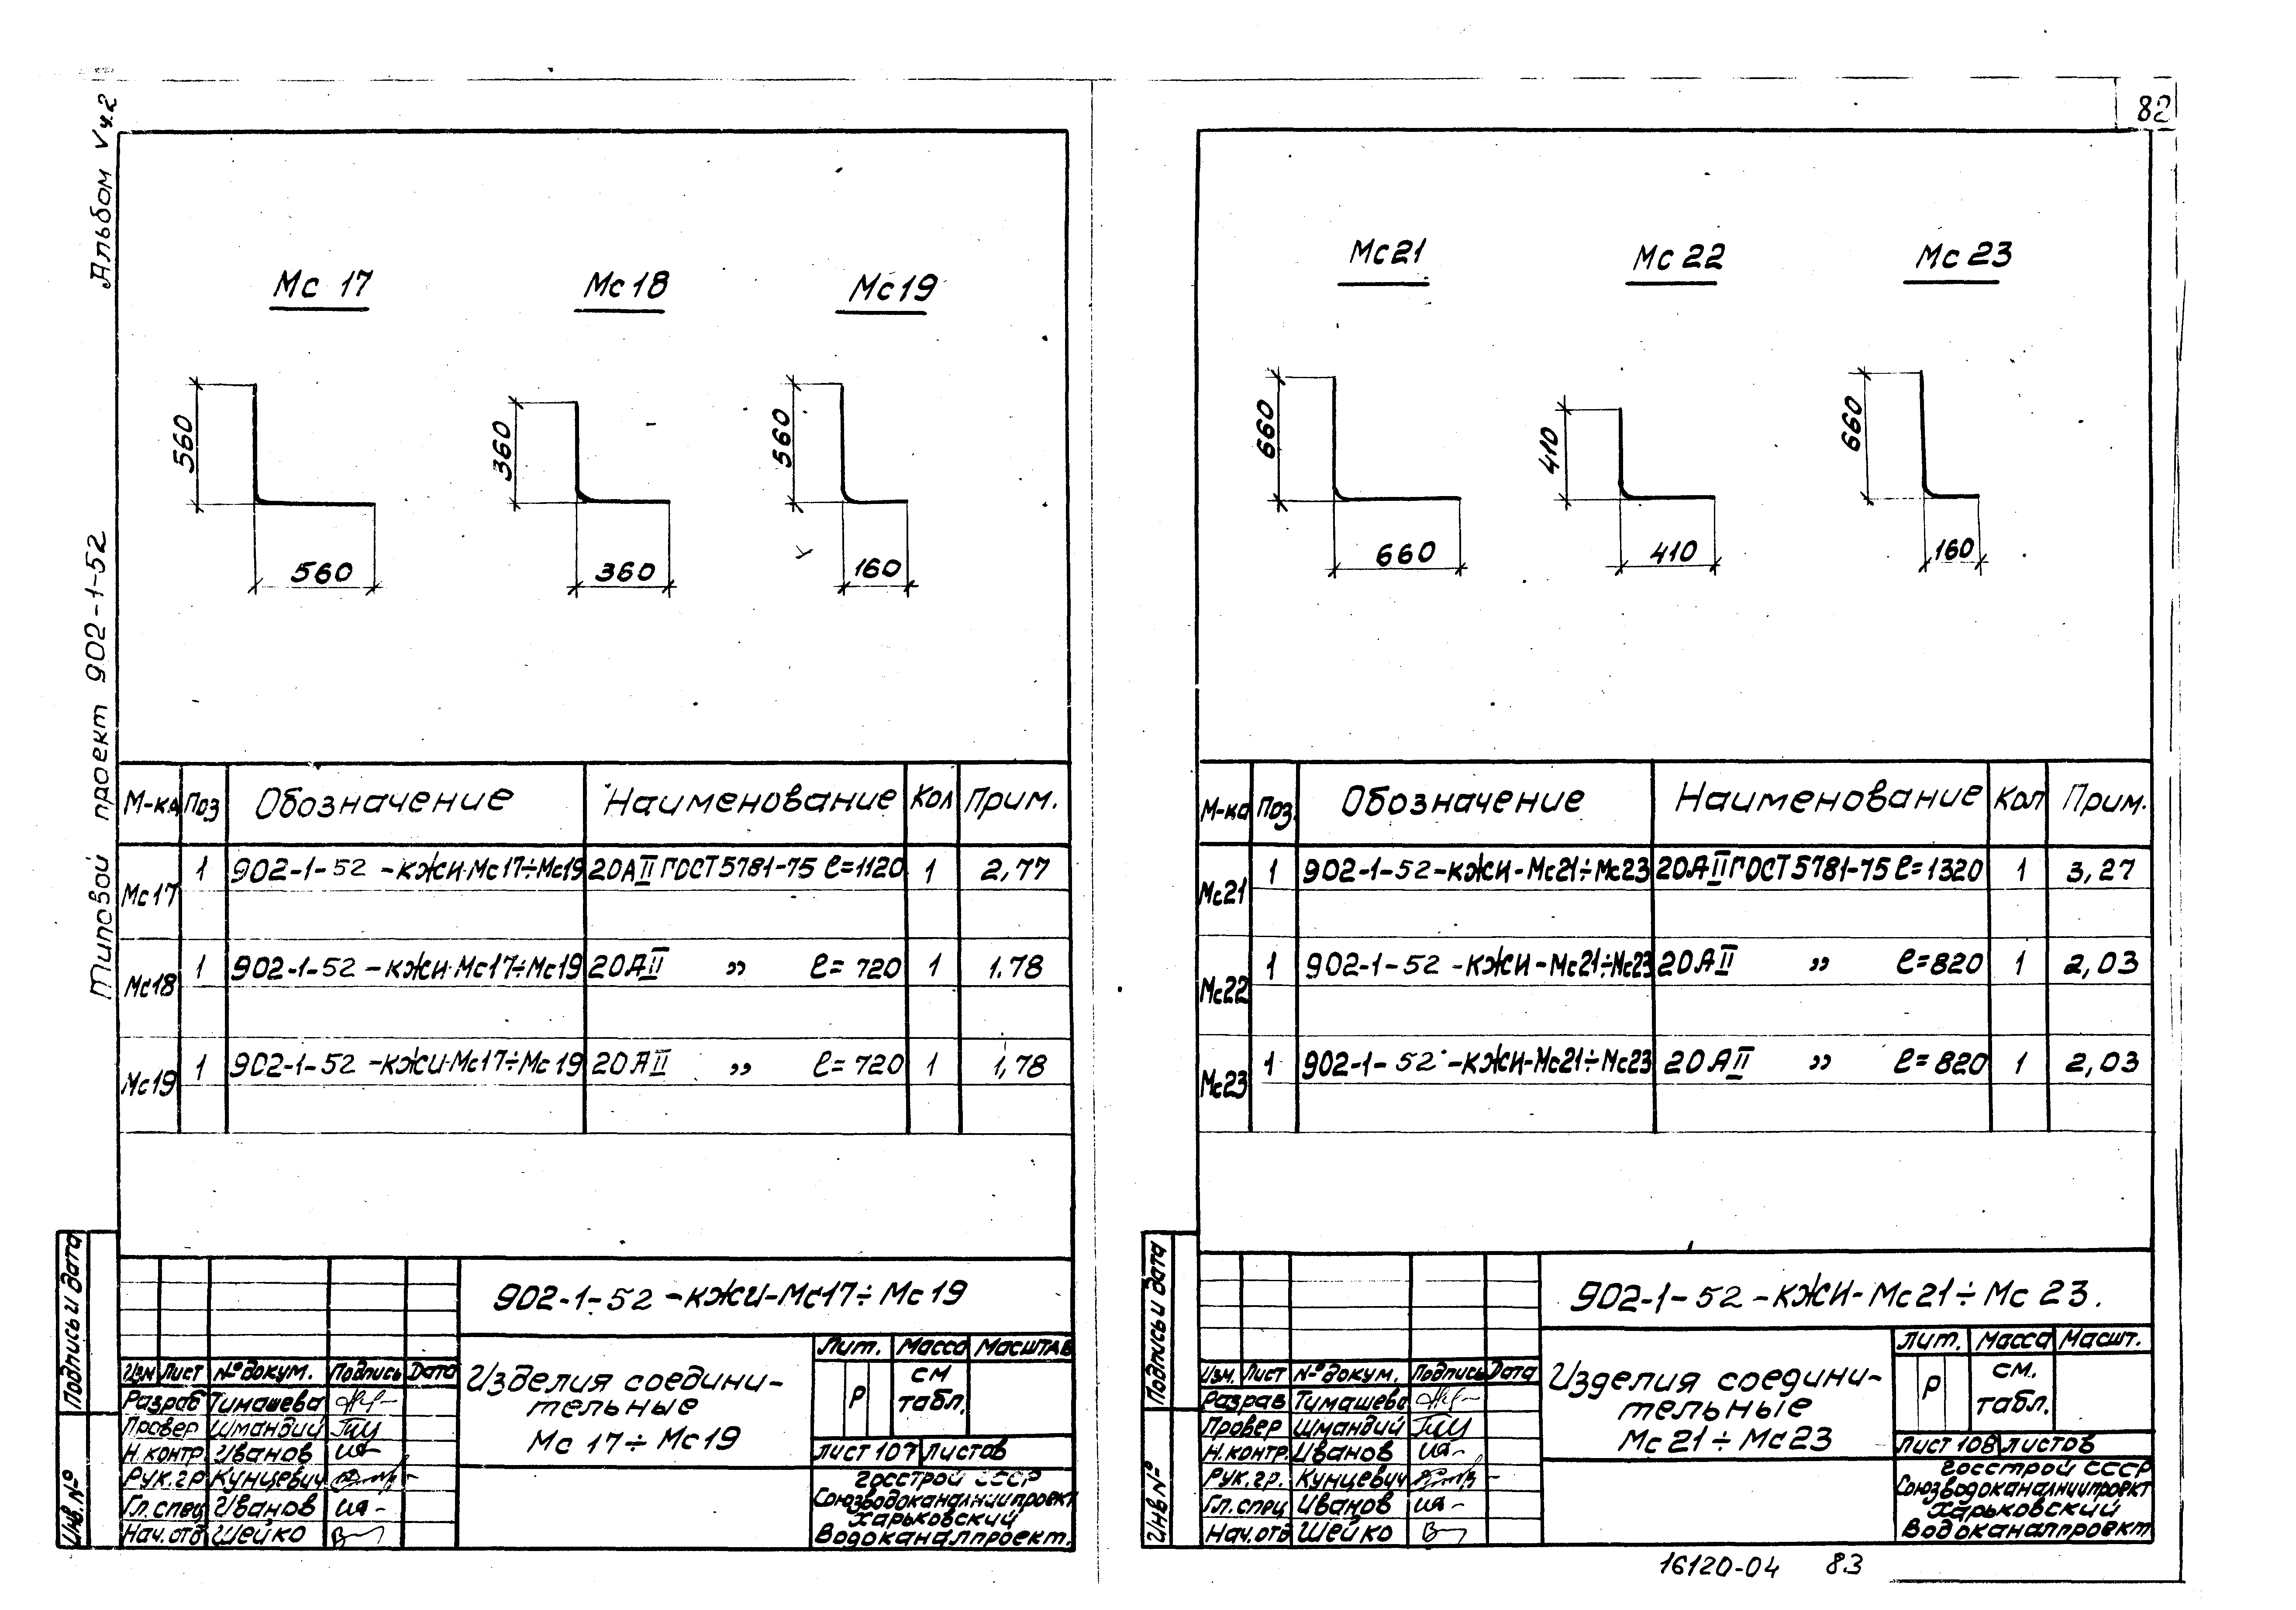 Альбом V ч.2
Типовой проект 902-1-52
82
Мс 17
Мс 18
Мс 19
560
560
360
360
560
160
М-ка Поз Обозначение Наименование Кол Прим.
Мс17 1 902-1-52-КЖИ-Мс17÷Мс19 20АII ГОСТ 5781-75 ℓ=1120 1 2,77
Мс18 1 902-1-52-КЖИ-Мс17÷Мс19 20АII " ℓ=720 1 1.78
Мс19 1 902-1-52-КЖИ-Мс17÷Мс19 20АII " ℓ=720 1 1,78
Подпись и дата
Инв. №
902-1-52-КЖИ-Мс17÷Мс19
Изм Лист № докум. Подпись Дата
Разраб Тимашева
Провер Шмандий
Н.контр. Иванов
Рук.гр Кунцевич
Гл.спец Иванов
Нач.отд Шейко
Изделия соедини-
тельные
Мс 17÷Мс19
Лит. Масса Масштаб
Р см
табл.
Лист 107 Листов
Госстрой СССР
Союзводоканалниипроект
Харьковский
Водоканалпроект.
Мс21
Мс 22
Мс 23
660
660
410
410
660
160
М-ка Поз. Обозначение Наименование Кол Прим.
Мс21 1 902-1-52-КЖИ-Мс21÷Мс23 20АII ГОСТ 5781-75 ℓ=1320 1 3,27
Мс22 1 902-1-52-КЖИ-Мс21÷Мс23 20АII " ℓ=820 1 2,03
Мс23 1 902-1-52-КЖИ-Мс21÷Мс23 20АII " ℓ=820 1 2,03
Подпись и дата
Инв №
902-1-52-КЖИ-Мс21÷Мс 23.
Изм. Лист № докум. Подпись Дата
Разрав Тимашева
Провер Шмандий
Н.контр. Иванов
Рук.гр. Кунцевич
Гл.спец Иванов
Нач.отд Шейко
Изделия соедини-
тельные
Мс21÷Мс23
Лит. Масса Масшт.
Р см.
табл.
Лист 108 Листов
Госстрой СССР
Союзводоканалниипроект
Харьковский
Водоканалпроект
16120-04 83